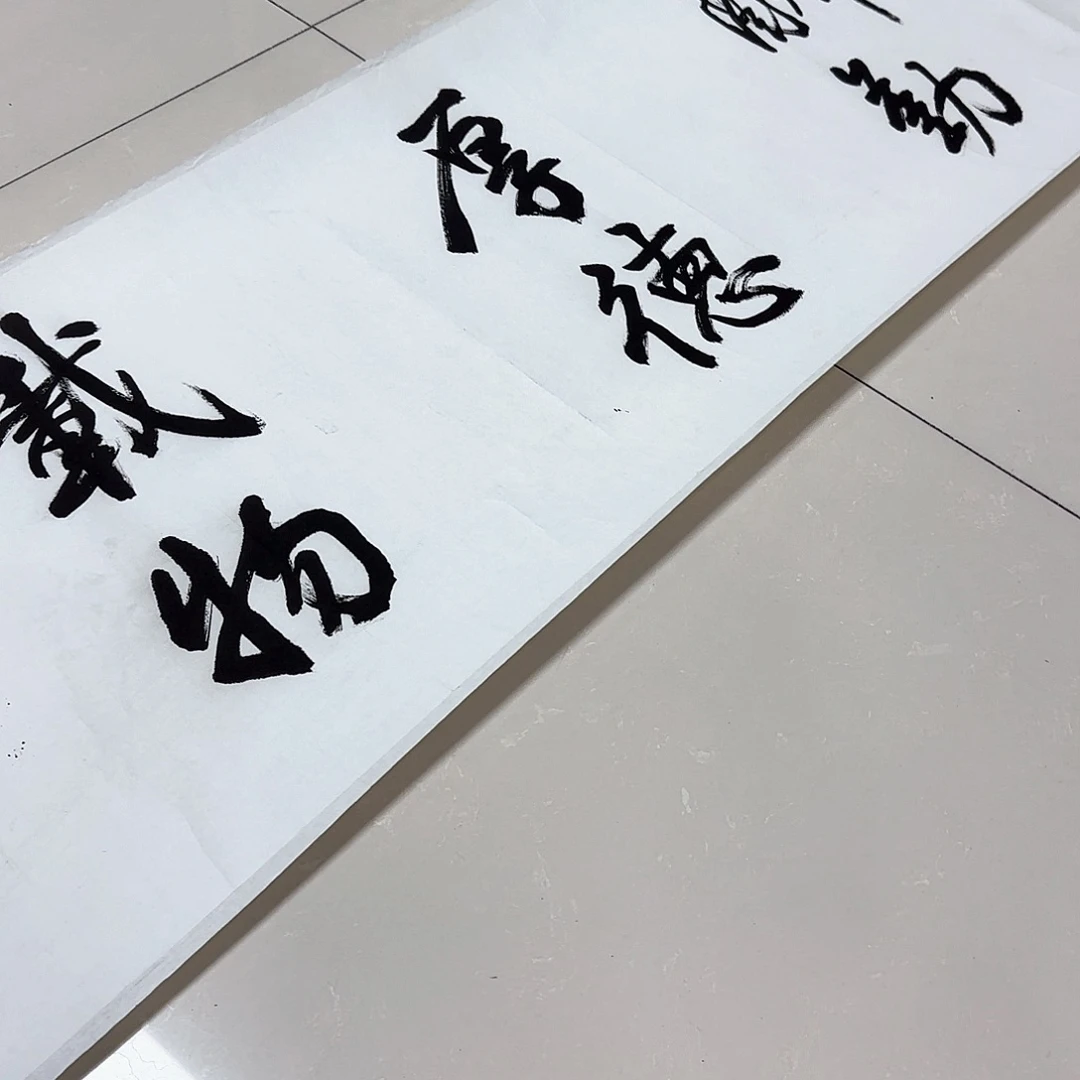 勤
厚德
載物